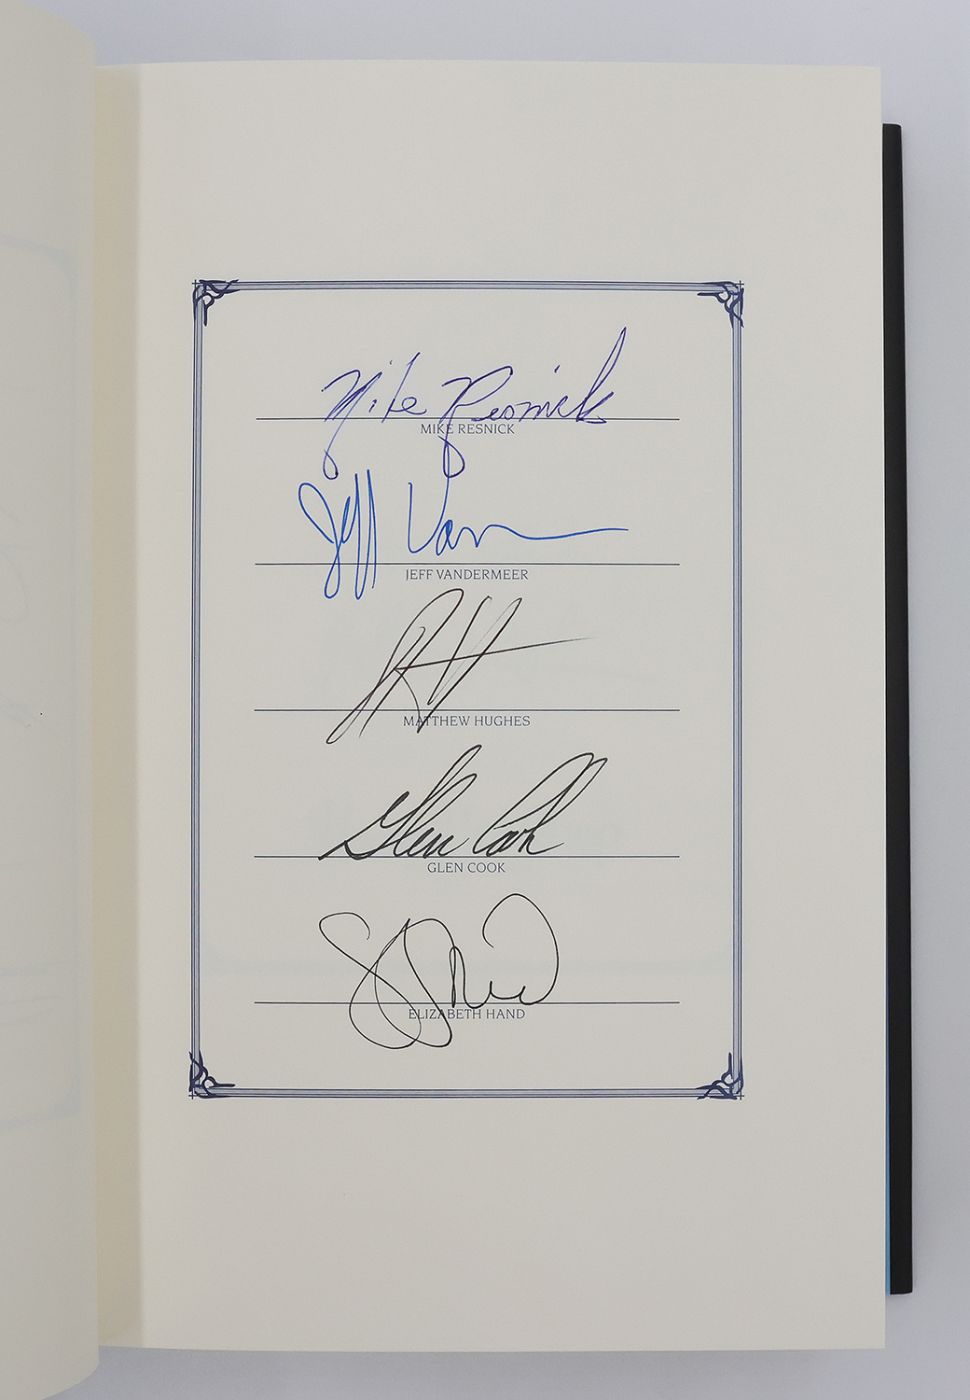 Mike Resnick
MIKE RESNICK
Jeff Van
JEFF VANDERMEER
MATTHEW HUGHES
Glen Cook
GLEN COOK
ELIZABETH HAND